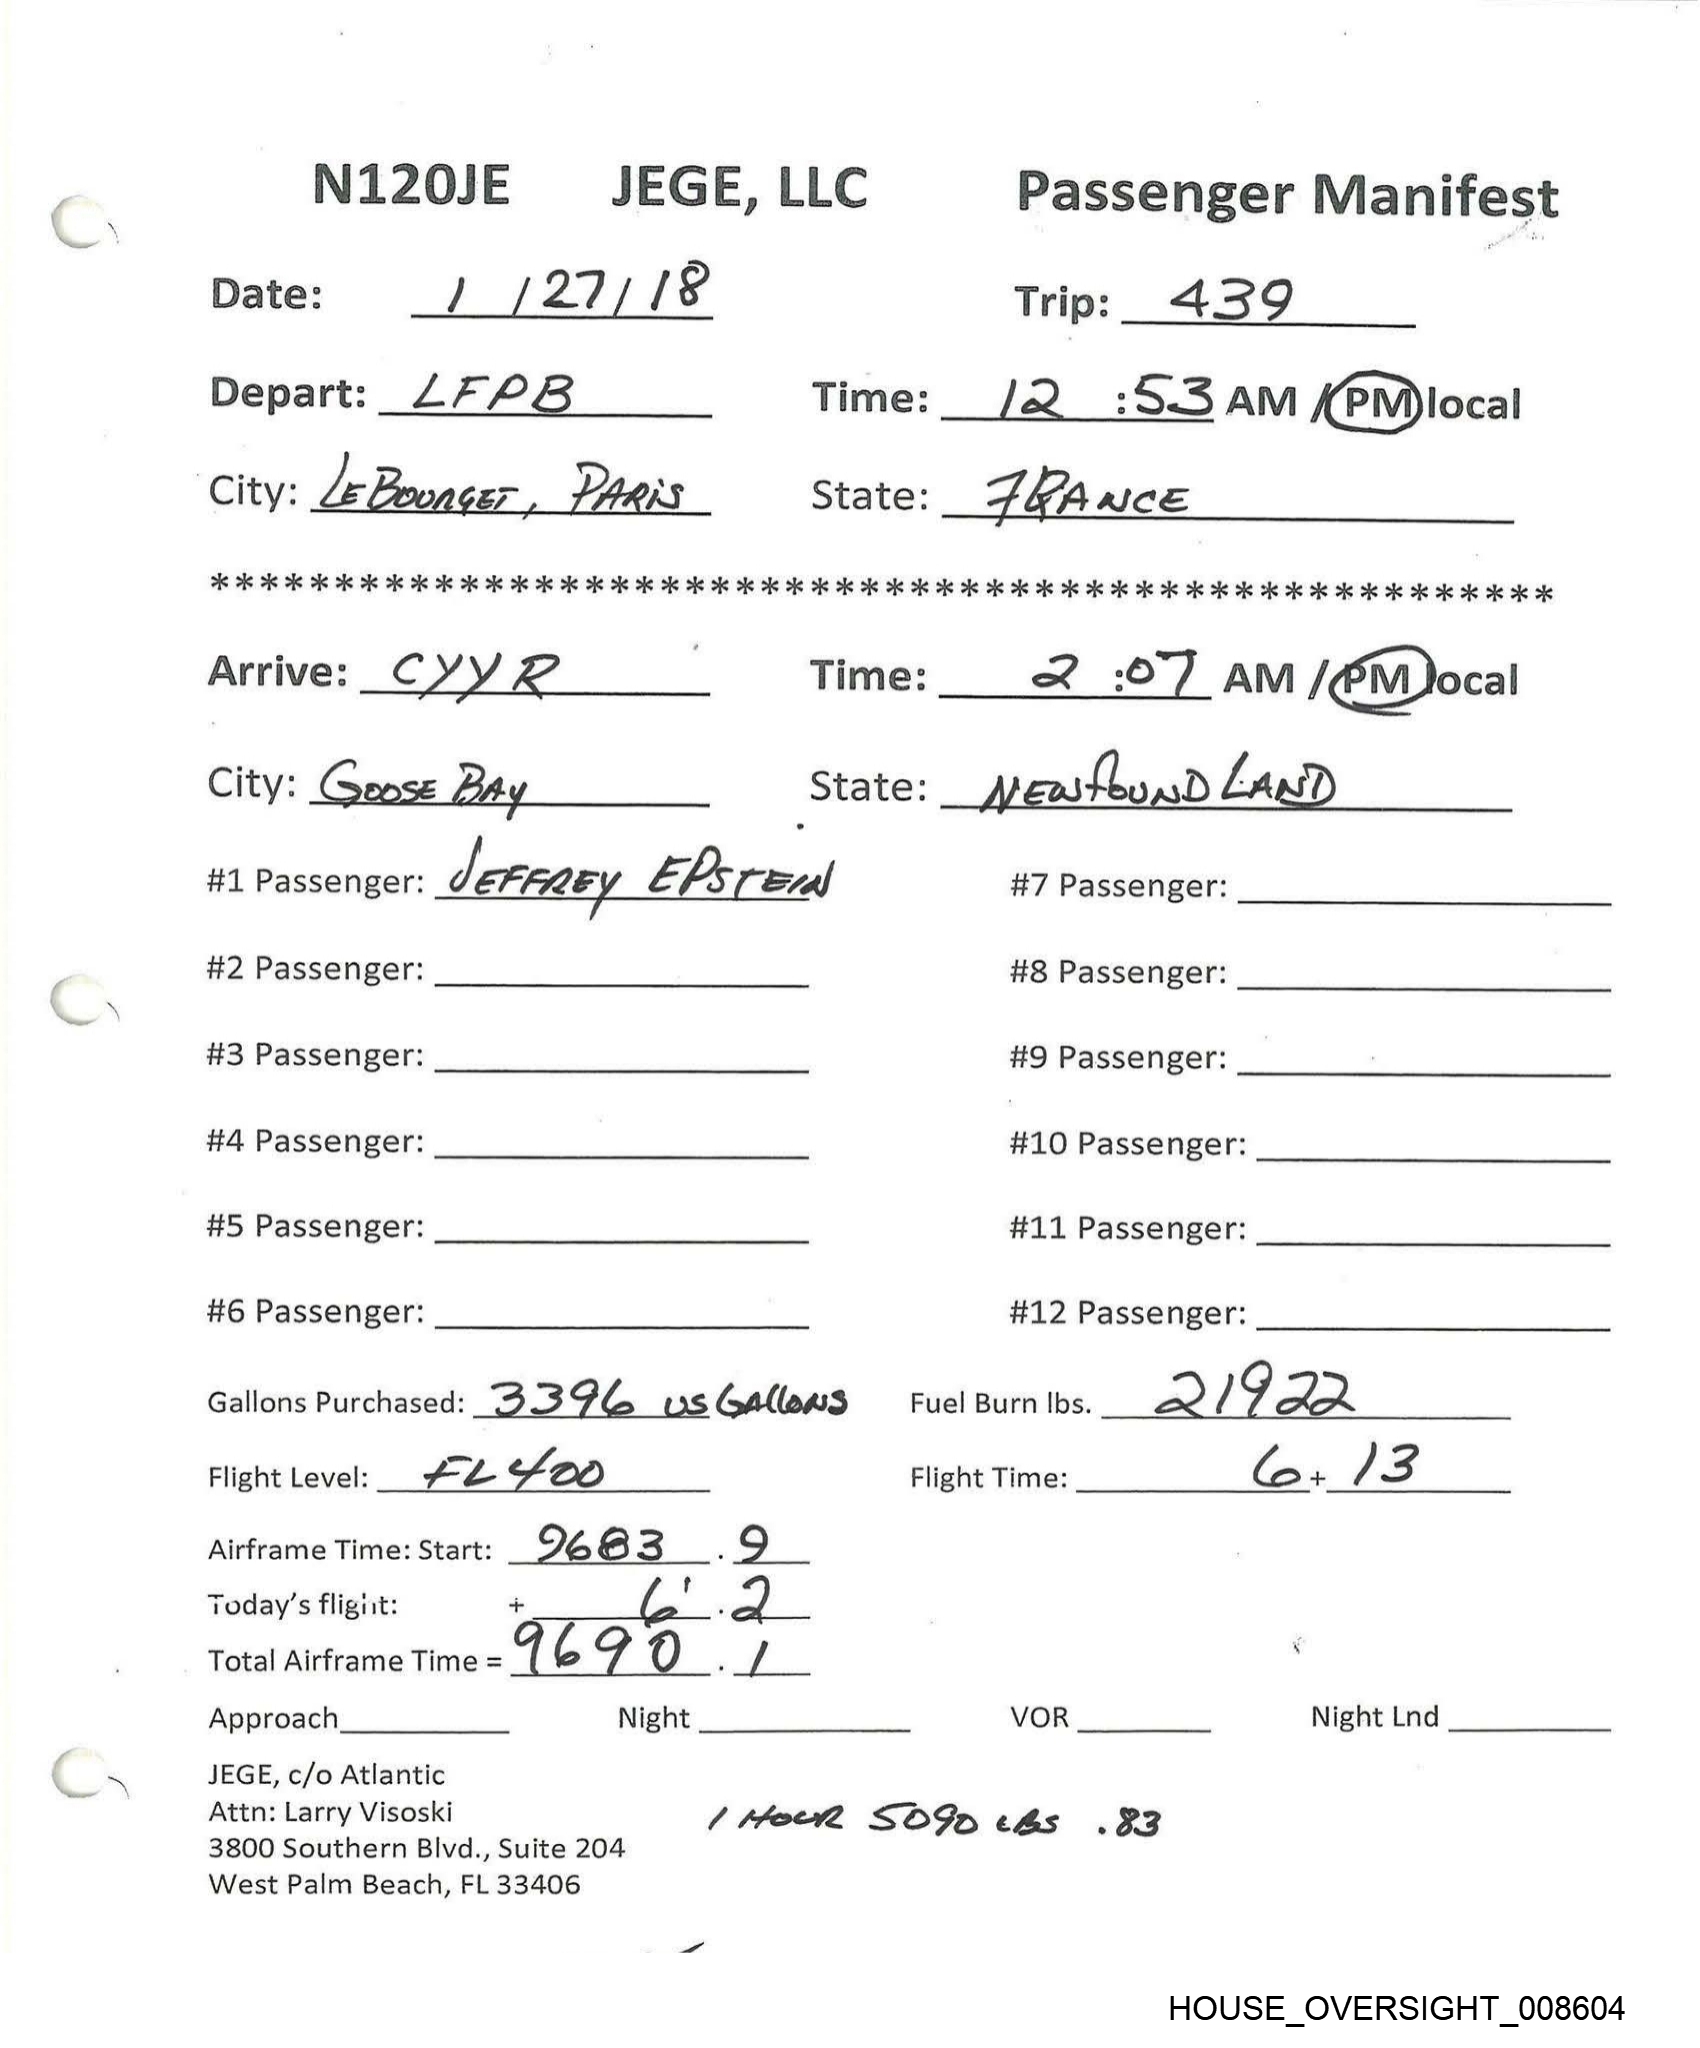 N120JE JEGE, LLC Passenger Manifest
Date: 1 /27/18 Trip: 439
Depart: LFPB Time: 12 :53 AM / PM local
City: LE BOURGET, PARIS State: FRANCE
******************************************************
Arrive: CYYR Time: 2 :07 AM / PM local
City: GOOSE BAY State: NEWFOUNDLAND
#1 Passenger: JEFFREY EPSTEIN #7 Passenger:
#2 Passenger: #8 Passenger:
#3 Passenger: #9 Passenger:
#4 Passenger: #10 Passenger:
#5 Passenger: #11 Passenger:
#6 Passenger: #12 Passenger:
Gallons Purchased: 3396 US GALLONS Fuel Burn lbs. 21922
Flight Level: FL400 Flight Time: 6 + 13
Airframe Time: Start: 9683 . 9
Today's flight: + 6 . 2
Total Airframe Time = 9690 . 1
Approach Night VOR Night Lnd
JEGE, c/o Atlantic
Attn: Larry Visoski
1 HOUR 5090 LBS .83
3800 Southern Blvd., Suite 204
West Palm Beach, FL 33406
HOUSE_OVERSIGHT_008604